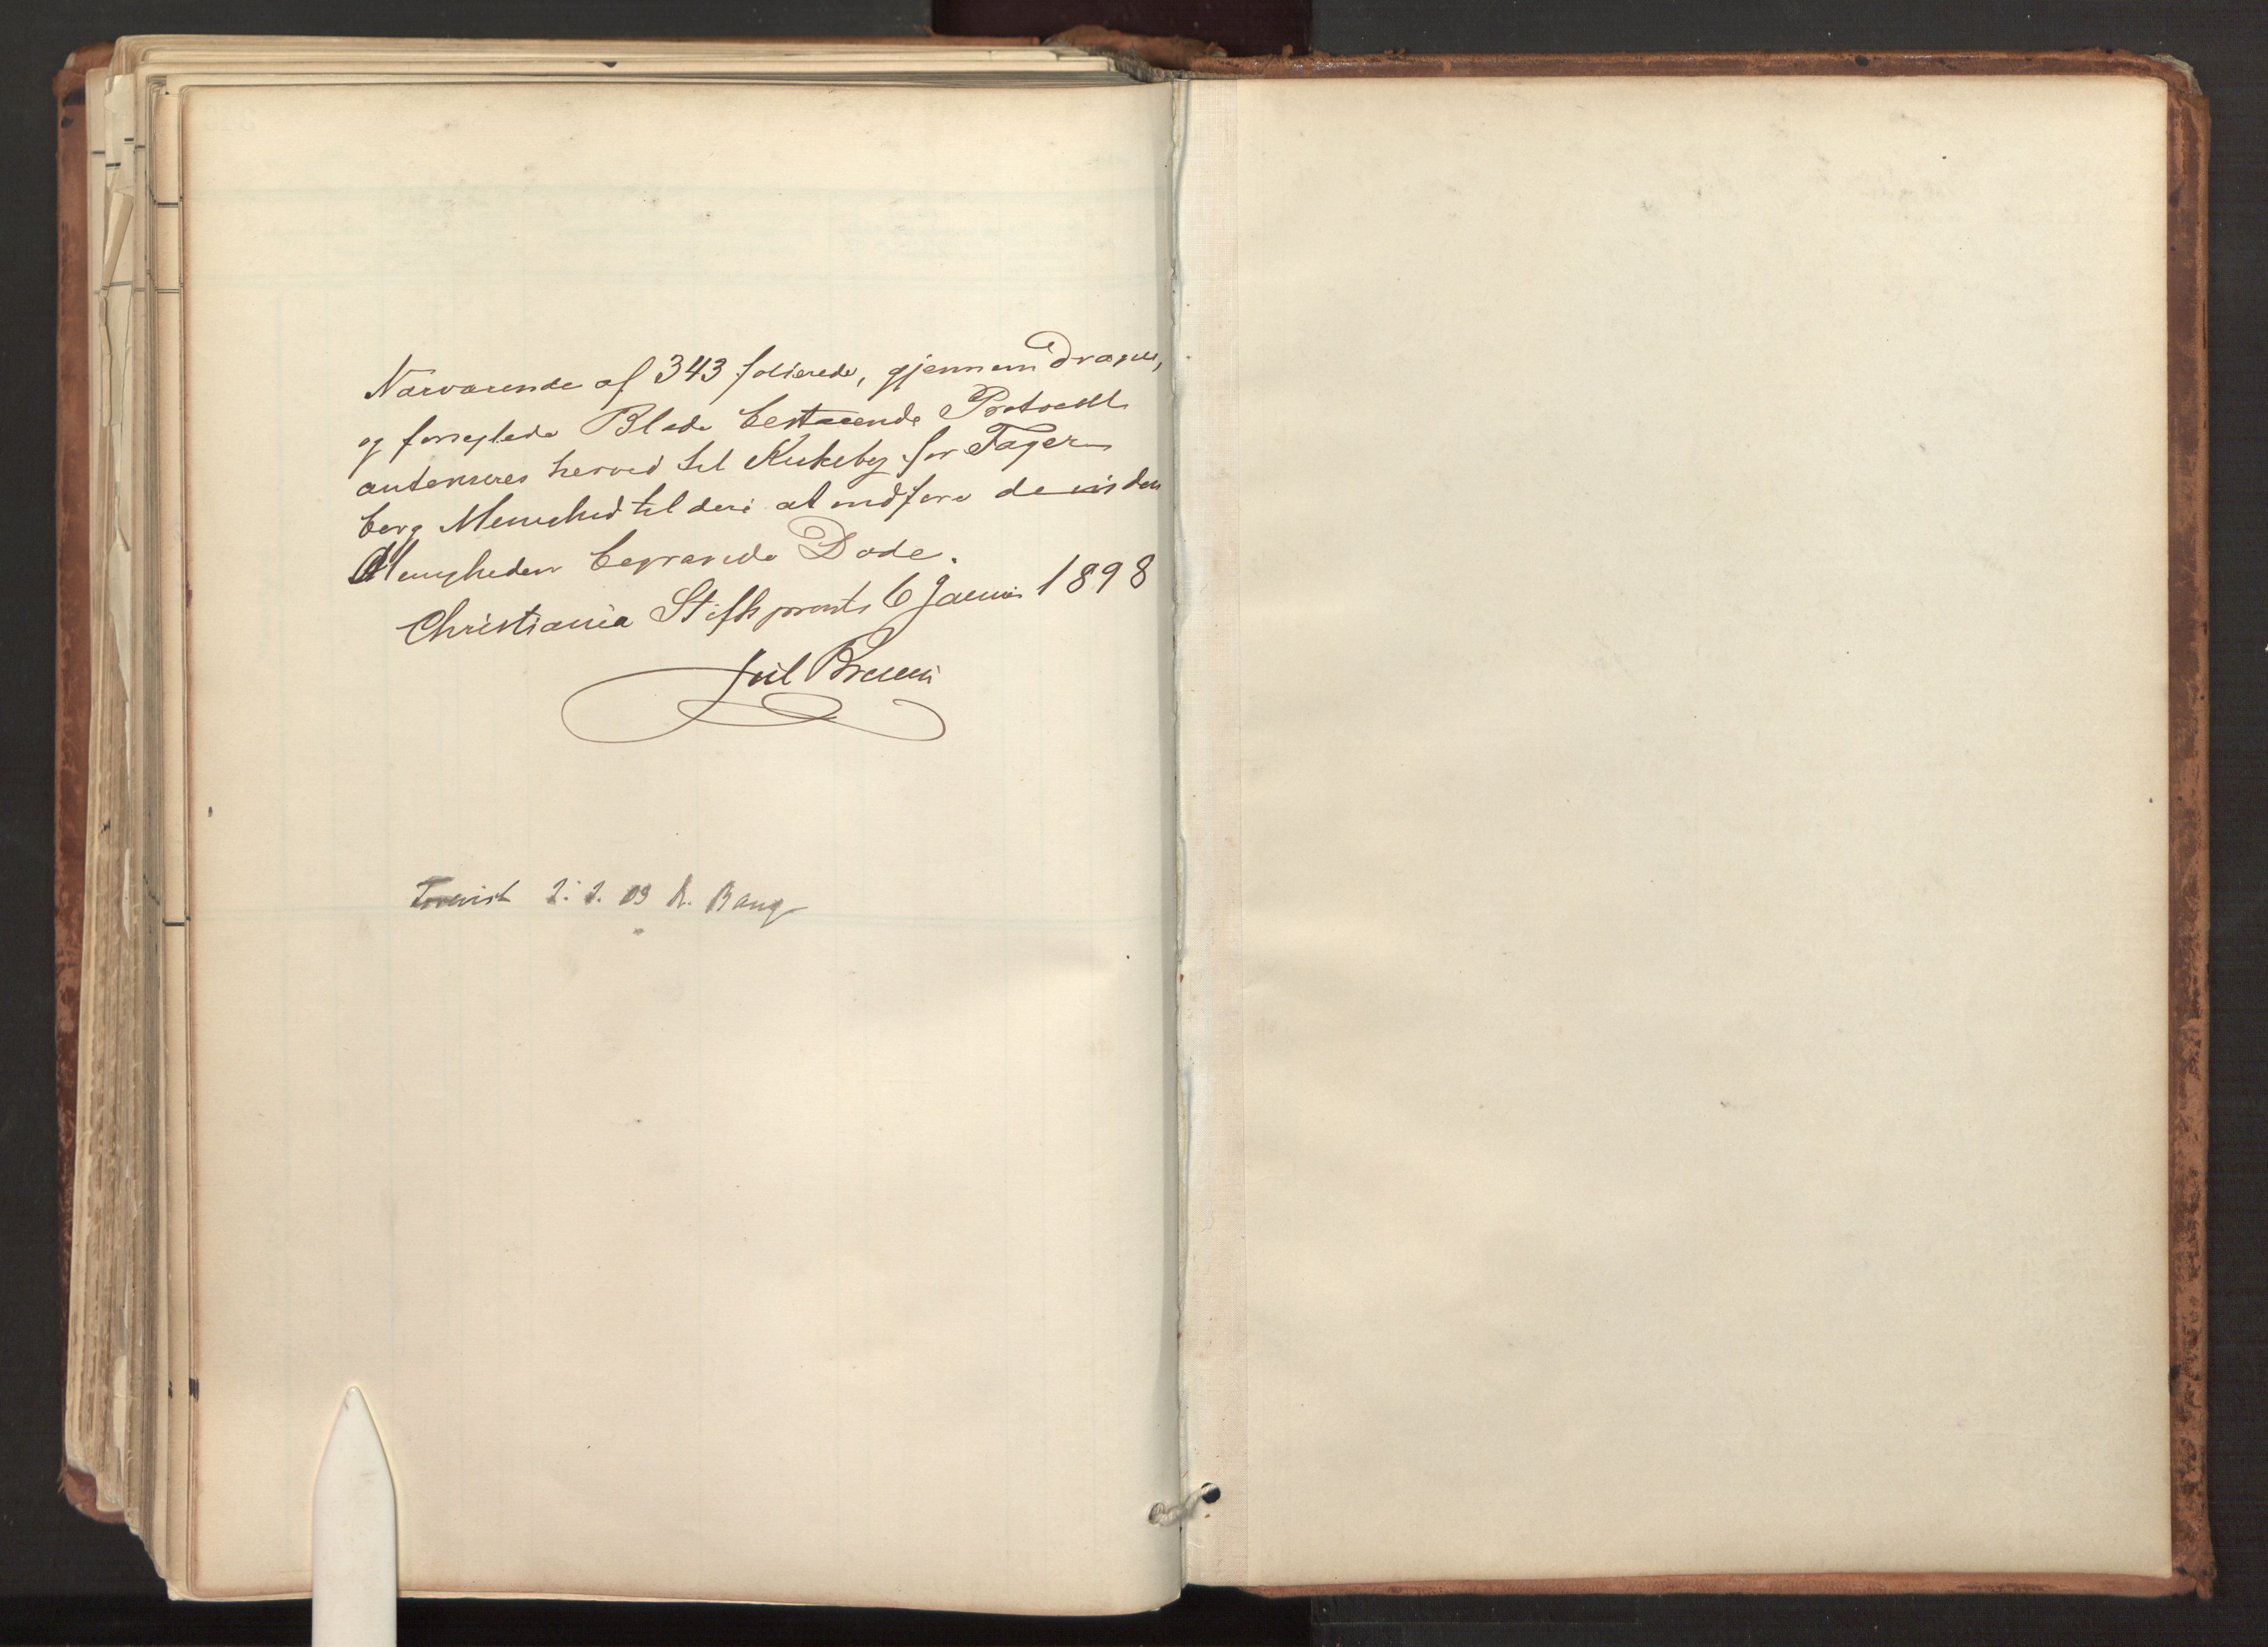 Nærværende af 343 folierede, gjennemdragne,
og forseglede Blade bestaaende Protocoll
autoriseres herved til Kirkebog for Fager
borg Menighed til deri at indføre de i den
Menigheden begravede Døde.
Christiania Stiftsprovsti 6 Januar 1898
Jul Bruun
Forevist 2. 2. 03 A. Bang